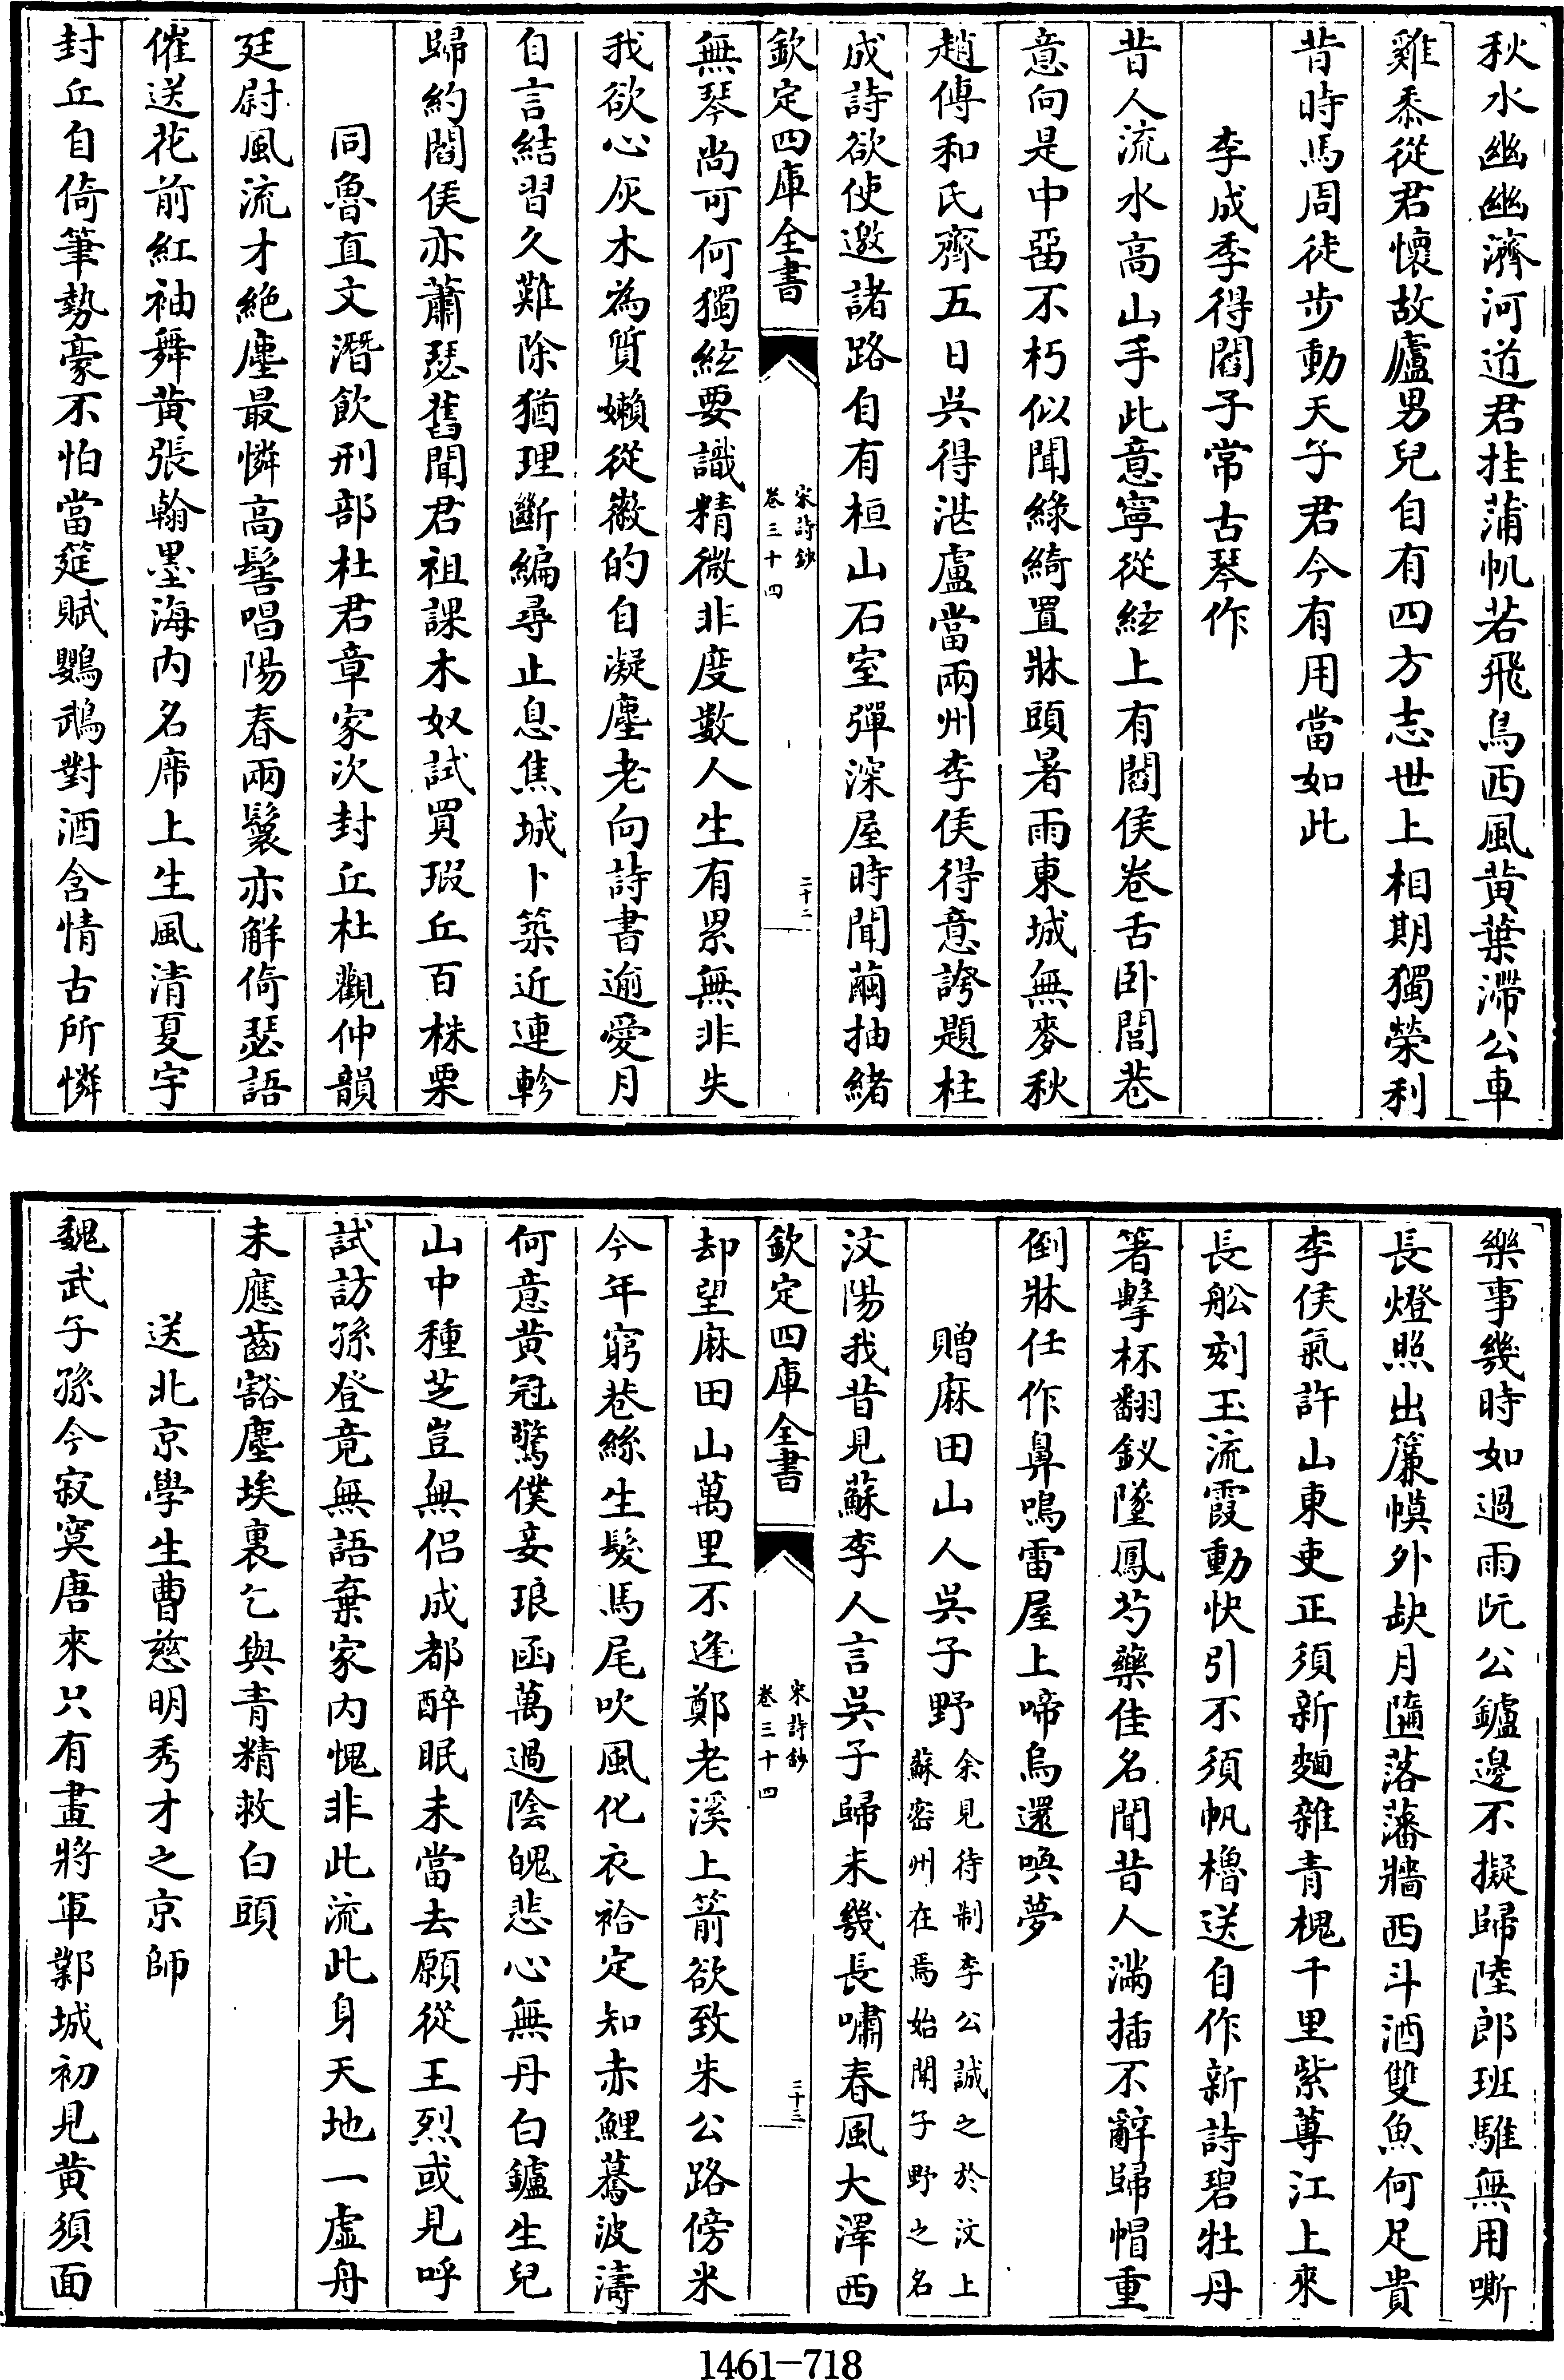 秋水幽幽濟河道君挂蒲帆若飛鳥西風黄葉滯公車
雞黍從君懷故廬男兒自有四方志世上相期獨榮利
昔時馬周徒步動天子君今有用當如此
李成季得閻子常古琴作
昔人流水高山手此意寧從絃上有閻侯卷舌卧閭巷
意向是中畱不朽似聞綠綺置牀頭暑雨東城無麥秋
趙傅和氏齊五日吳得湛盧當兩州李侯得意誇題柱
成詩欲使邀諸路自有桓山石室彈深屋時聞繭抽緒
欽定四庫全書
宋詩鈔
卷三十四
二十二
無琴尚可何獨絃要識精微非度數人生有累無非失
我欲心灰木為質嬾從徽的自凝塵老向詩書逾愛月
自言結習久難除猶理斷編尋止息焦城卜築近連軫
歸約閻侯亦蕭瑟舊聞君祖課木奴試買瑕丘百株栗
同魯直文潛飲刑部杜君章家次封丘杜觀仲韻
廷尉風流才絶塵最憐高髻唱陽春兩鬟亦解倚瑟語
催送花前紅袖舞黄張翰墨海内名席上生風清夏宇
封丘自倚筆勢豪不怕當筵賦鸚鵡對酒含情古所憐
樂事幾時如過雨阮公鑪邊不擬歸陸郎班騅無用嘶
長燈照出簾幙外缺月墮落藩牆西斗酒雙魚何足貴
李侯氣許山東吏正須新麯雜青槐千里紫蓴江上來
長舩刻玉流霞動快引不須帆櫓送自作新詩碧牡丹
箸擊杯翻釵墜鳳芍藥佳名聞昔人滿插不辭歸帽重
倒牀任作鼻鳴雷屋上啼烏還喚夢
贈麻田山人吳子野
余見待制李公誠之於汶上
蘇密州在焉始聞子野之名
汶陽我昔見蘇李人言吳子歸未幾長嘯春風大澤西
欽定四庫全書
宋詩鈔
卷三十四
二十三
却望麻田山萬里不逢鄭老溪上箭欲致朱公路傍米
今年窮巷絲生髮馬尾吹風化衣袷定知赤鯉蓦波濤
何意黄冠驚僕妾琅函萬過陰魄悲心無丹白鑪生兒
山中種芝豈無侣成都醉眠未當去願從王烈或見呼
試訪孫登竟無語棄家内愧非此流此身天地一虚舟
未應齒豁塵埃裏乞與青精救白頭
送北京學生曹慈明秀才之京師
魏武子孫今寂寞唐來只有畫將軍鄴城初見黄須面
1461—718